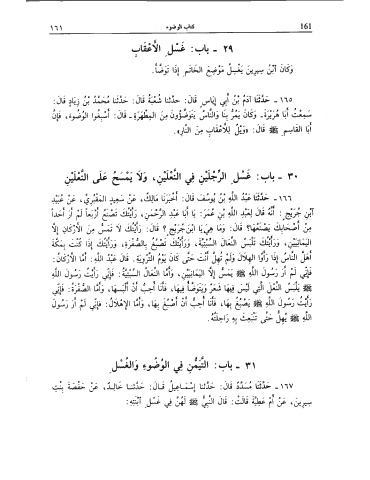 161 كتاب الوضوء ١٦١
٢٩ - باب: غَسْلِ الأَعْقَابِ
وَكَانَ ابْنُ سِيرِينَ يَغْسِلُ مَوْضِعَ الخَاتَمِ إِذَا تَوَضَّأَ.
١٦٥ - حَدَّثَنَا آدَمُ بْنُ أَبِي إِيَاسٍ قَالَ: حَدَّثَنَا شُعْبَةُ قَالَ: حَدَّثَنَا مُحَمَّدُ بْنُ زِيَادٍ قَالَ:
سَمِعْتُ أَبَا هُرَيْرَةَ، وَكَانَ يَمُرُّ بِنَا وَالنَّاسُ يَتَوَضَّؤُونَ مِنَ المِطْهَرَةِ، قَالَ: أَسْبِغُوا الوُضُوءَ، فَإِنَّ
أَبَا القَاسِمِ ﷺ قَالَ: «وَيْلٌ لِلْأَعْقَابِ مِنَ النَّارِ».
٣٠ - باب: غَسْلِ الرِّجْلَيْنِ فِي النَّعْلَيْنِ، وَلَا يَمْسَحُ عَلَى النَّعْلَيْنِ
١٦٦ - حَدَّثَنَا عَبْدُ اللَّهِ بْنُ يُوسُفَ قَالَ: أَخْبَرَنَا مَالِكٌ، عَنْ سَعِيدٍ المَقْبُرِيِّ، عَنْ عُبَيْدِ
ابْنِ جُرَيْجٍ: أَنَّهُ قَالَ لِعَبْدِ اللَّهِ بْنِ عُمَرَ: يَا أَبَا عَبْدِ الرَّحْمٰنِ، رَأَيْتُكَ تَصْنَعُ أَرْبَعاً لَمْ أَرَ أَحَداً
مِنْ أَصْحَابِكَ يَصْنَعُهَا؟ قَالَ: وَمَا هِيَ يَا ابْنَ جُرَيْجٍ؟ قَالَ: رَأَيْتُكَ لَا تَمَسُّ مِنَ الأَرْكَانِ إِلَّا
اليَمَانِيَيْنِ، وَرَأَيْتُكَ تَلْبَسُ النِّعَالَ السِّبْتِيَّةَ، وَرَأَيْتُكَ تَصْبُغُ بِالصُّفْرَةِ، وَرَأَيْتُكَ إِذَا كُنْتَ بِمَكَّةَ
أَهَلَّ النَّاسُ إِذَا رَأَوُا الهِلَالَ وَلَمْ تُهِلَّ أَنْتَ حَتَّى كَانَ يَوْمُ التَّرْوِيَةِ. قَالَ عَبْدُ اللَّهِ: أَمَّا الأَرْكَانُ:
فَإِنِّي لَمْ أَرَ رَسُولَ اللَّهِ ﷺ يَمَسُّ إِلَّا اليَمَانِيَيْنِ، وَأَمَّا النِّعَالُ السِّبْتِيَّةُ: فَإِنِّي رَأَيْتُ رَسُولَ اللَّهِ
ﷺ يَلْبَسُ النَّعْلَ الَّتِي لَيْسَ فِيهَا شَعَرٌ وَيَتَوَضَّأُ فِيهَا، فَأَنَا أُحِبُّ أَنْ أَلْبَسَهَا، وَأَمَّا الصُّفْرَةُ: فَإِنِّي
رَأَيْتُ رَسُولَ اللَّهِ ﷺ يَصْبُغُ بِهَا، فَأَنَا أُحِبُّ أَنْ أَصْبُغَ بِهَا، وَأَمَّا الإِهْلَالُ: فَإِنِّي لَمْ أَرَ رَسُولَ
اللَّهِ ﷺ يُهِلُّ حَتَّى تَنْبَعِثَ بِهِ رَاحِلَتُهُ.
٣١ - باب: التَّيَمُّنِ فِي الوُضُوءِ وَالغُسْلِ
١٦٧ - حَدَّثَنَا مُسَدَّدٌ قَالَ: حَدَّثَنَا إِسْمَاعِيلُ قَالَ: حَدَّثَنَا خَالِدٌ، عَنْ حَفْصَةَ بِنْتِ
سِيرِينَ، عَنْ أُمِّ عَطِيَّةَ قَالَتْ: قَالَ النَّبِيُّ ﷺ لَهُنَّ فِي غَسْلِ ابْنَتِهِ: